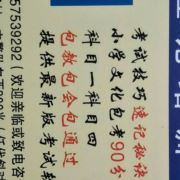 考试技巧速记秘诀
小学文化包考90分
科目一科目四
包教包会包通过
提供最新版考试
57539292(欢迎亲临或致电咨